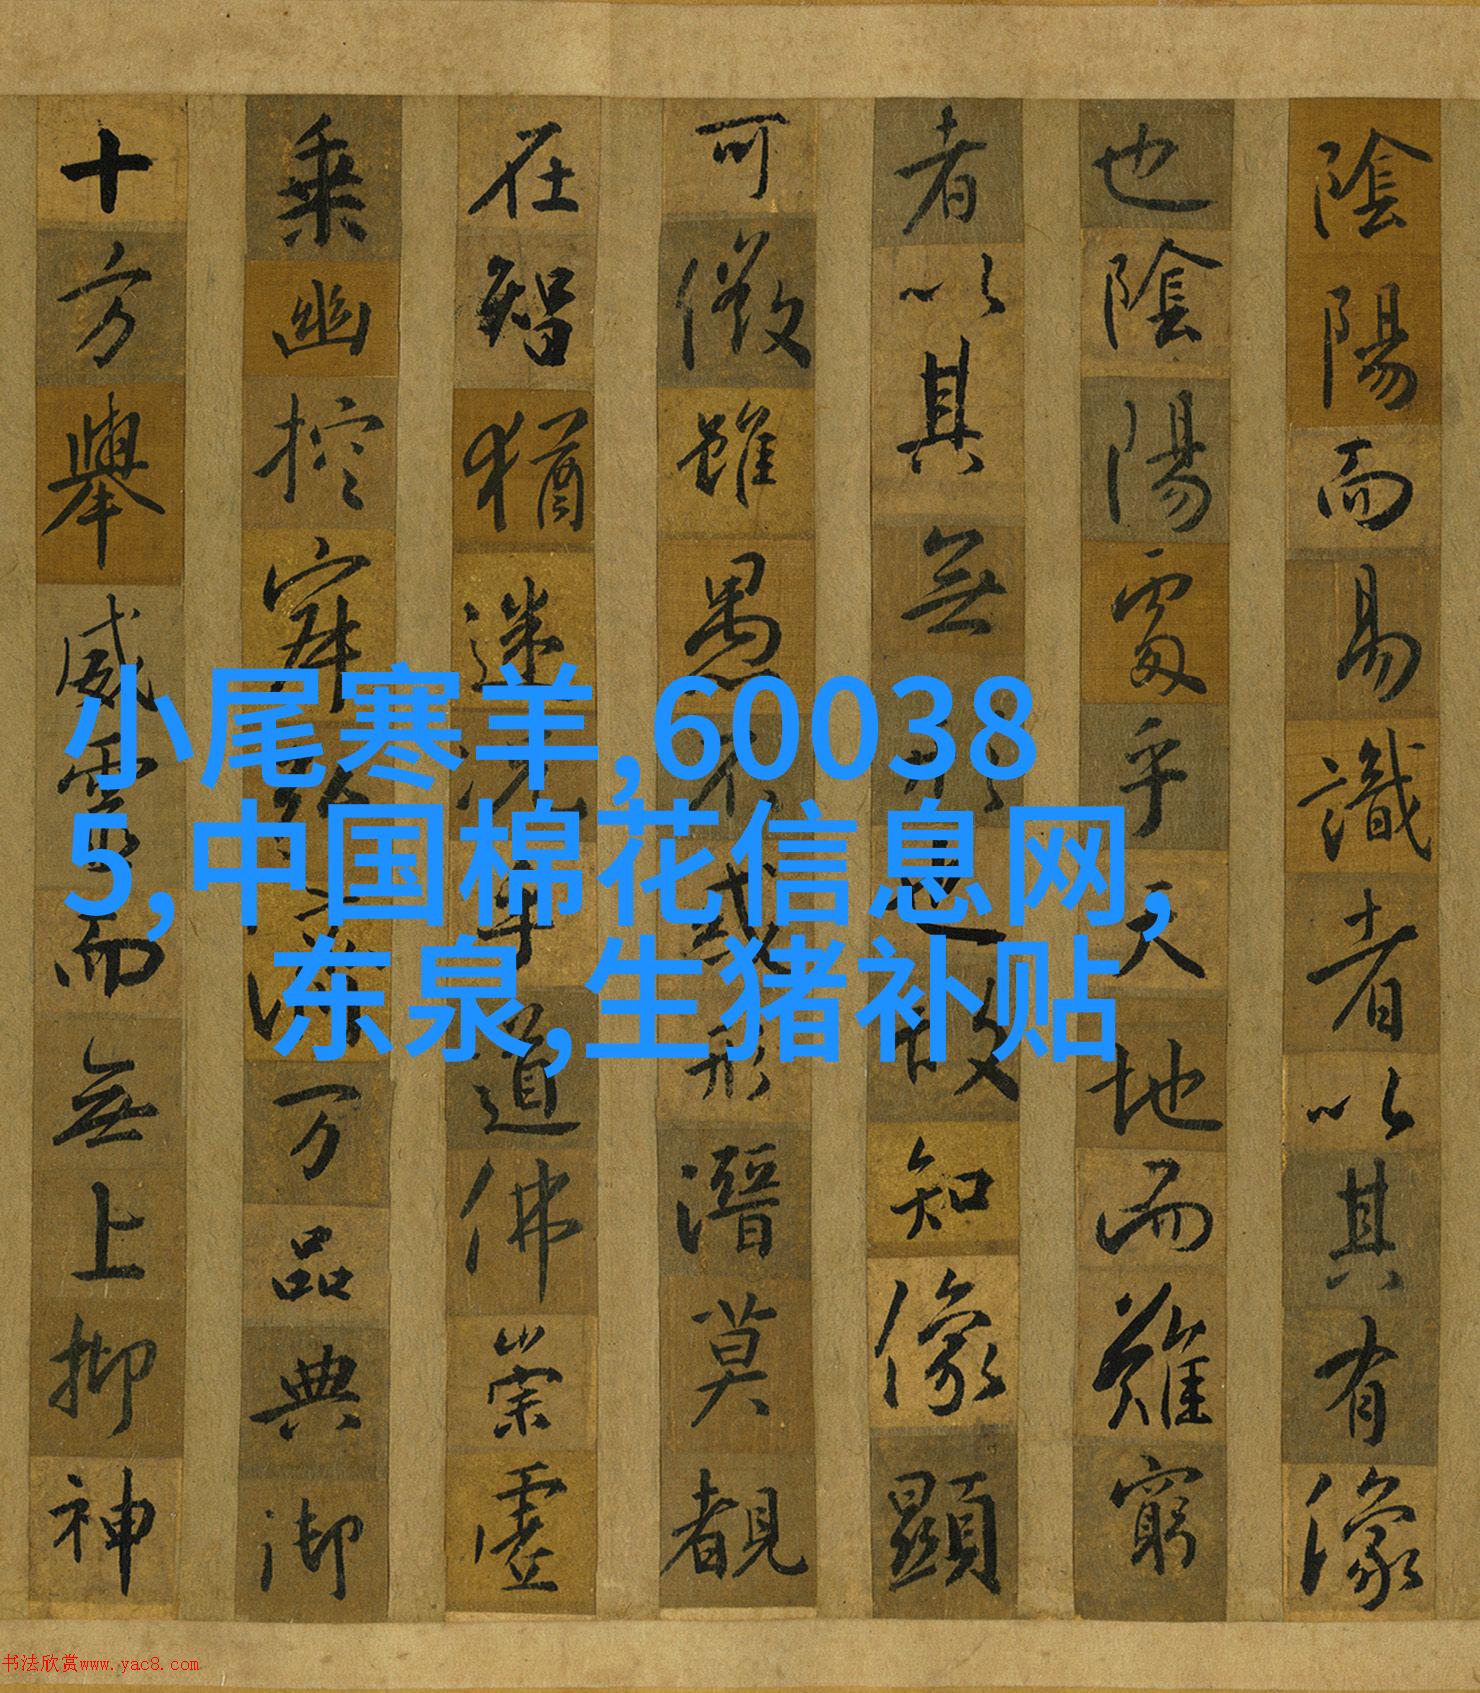 陰陽而易識者以其有像
也陰陽處乎天地而難窮
者以其無形也故知像顯
可徵雖愚不惑形潛莫覩
在智猶迷况乎道佛崇虛
乘幽控寂弘濟万品典御
十方舉威靈而無上抑神
小尾寒羊,60038
5,中国棉花信息网,
东泉,生猪补贴
书法欣赏www.yac8.com